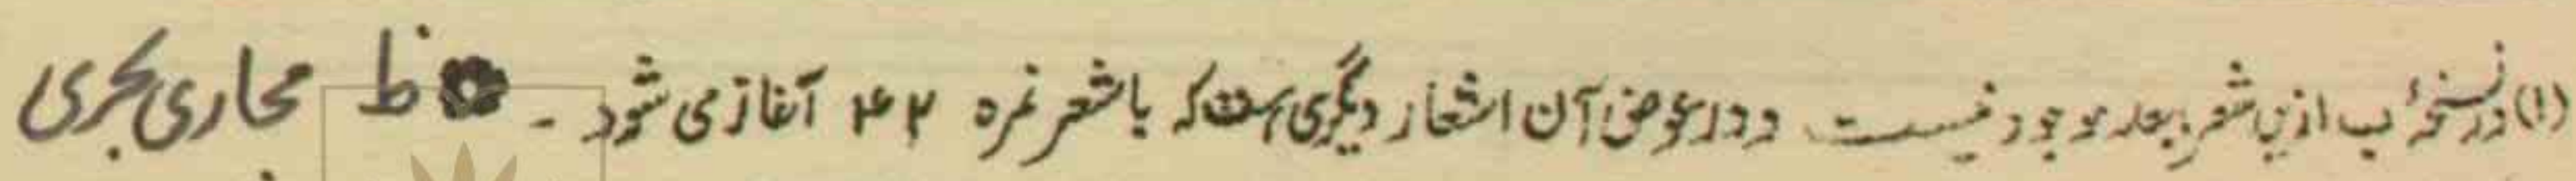 (۱) در نسخهٔ ب ازین شعر ببعد موجود نیست و در عوض آن اشعار دیگری است که با شعر نمره ۴۲ آغاز می شود - ظ مجاری بحری